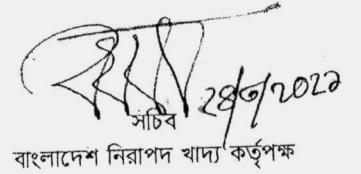 ২৪/৩/২০২১
সচিব
বাংলাদেশ নিরাপদ খাদ্য কর্তৃপক্ষ